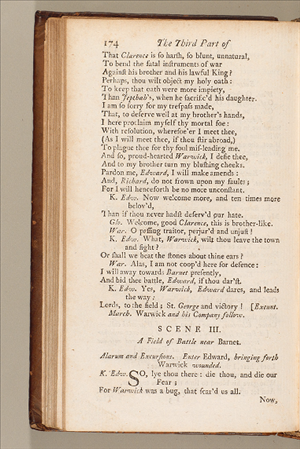 174 The Third Part of
That Clarence is so harsh, so blunt, unnatural,
To bend the fatal instruments of war
Against his brother and his lawful King?
Perhaps, thou wilt object my holy oath:
To keep that oath were more impiety,
Than Jepthah's, when he sacrific'd his daughter.
I am so sorry for my trespass made,
That, to deserve well at my brother's hands,
I here proclaim myself thy mortal foe:
With resolution, wheresoe'er I meet thee,
(As I will meet thee, if thou stir abroad,)
To plague thee for thy foul mis-leading me.
And so, proud-hearted Warwick, I defie thee,
And to my brother turn my blushing cheeks.
Pardon me, Edward, I will make amends:
And, Richard, do not frown upon my faults;
For I will henceforth be no more unconstant.
K. Edw. Now welcome more, and ten times more
belov'd,
Than if thou never hadst deserv'd our hate.
Glo. Welcome, good Clarence, this is brother-like.
War. O passing traitor, perjur'd and unjust!
K. Edw. What, Warwick, wilt thou leave the town
and fight?
Or shall we beat the stones about thine ears?
War. Alas, I am not coop'd here for defence:
I will away towards Barnet presently,
And bid thee battle, Edward, if thou dar'st.
K. Edw. Yes, Warwick, Edward dares, and leads
the way:
Lords, to the field; St. George and victory! [Exeunt.
March. Warwick and his Company follow.
SCENE III.
A Field of Battle near Barnet.
Alarum and Excursions. Enter Edward, bringing forth
Warwick wounded.
K. Edw. SO, lye thou there: die thou, and die our
Fear;
For Warwick was a bug, that fear'd us all.
Now,